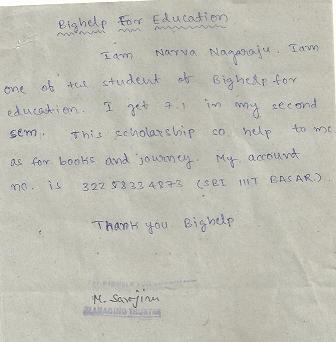 Bighelp For Education
Iam Narva Nagaraju. Iam
one of the student of Bighelp for
education. I get 7.1 in my second
sem. This scholarship so help to me
as for books and journey. My account
no. is 32258334873 (SBI IIIT BASAR.)
Thank you Bighelp
M. Sarojini
MANAGING TRUSTEE